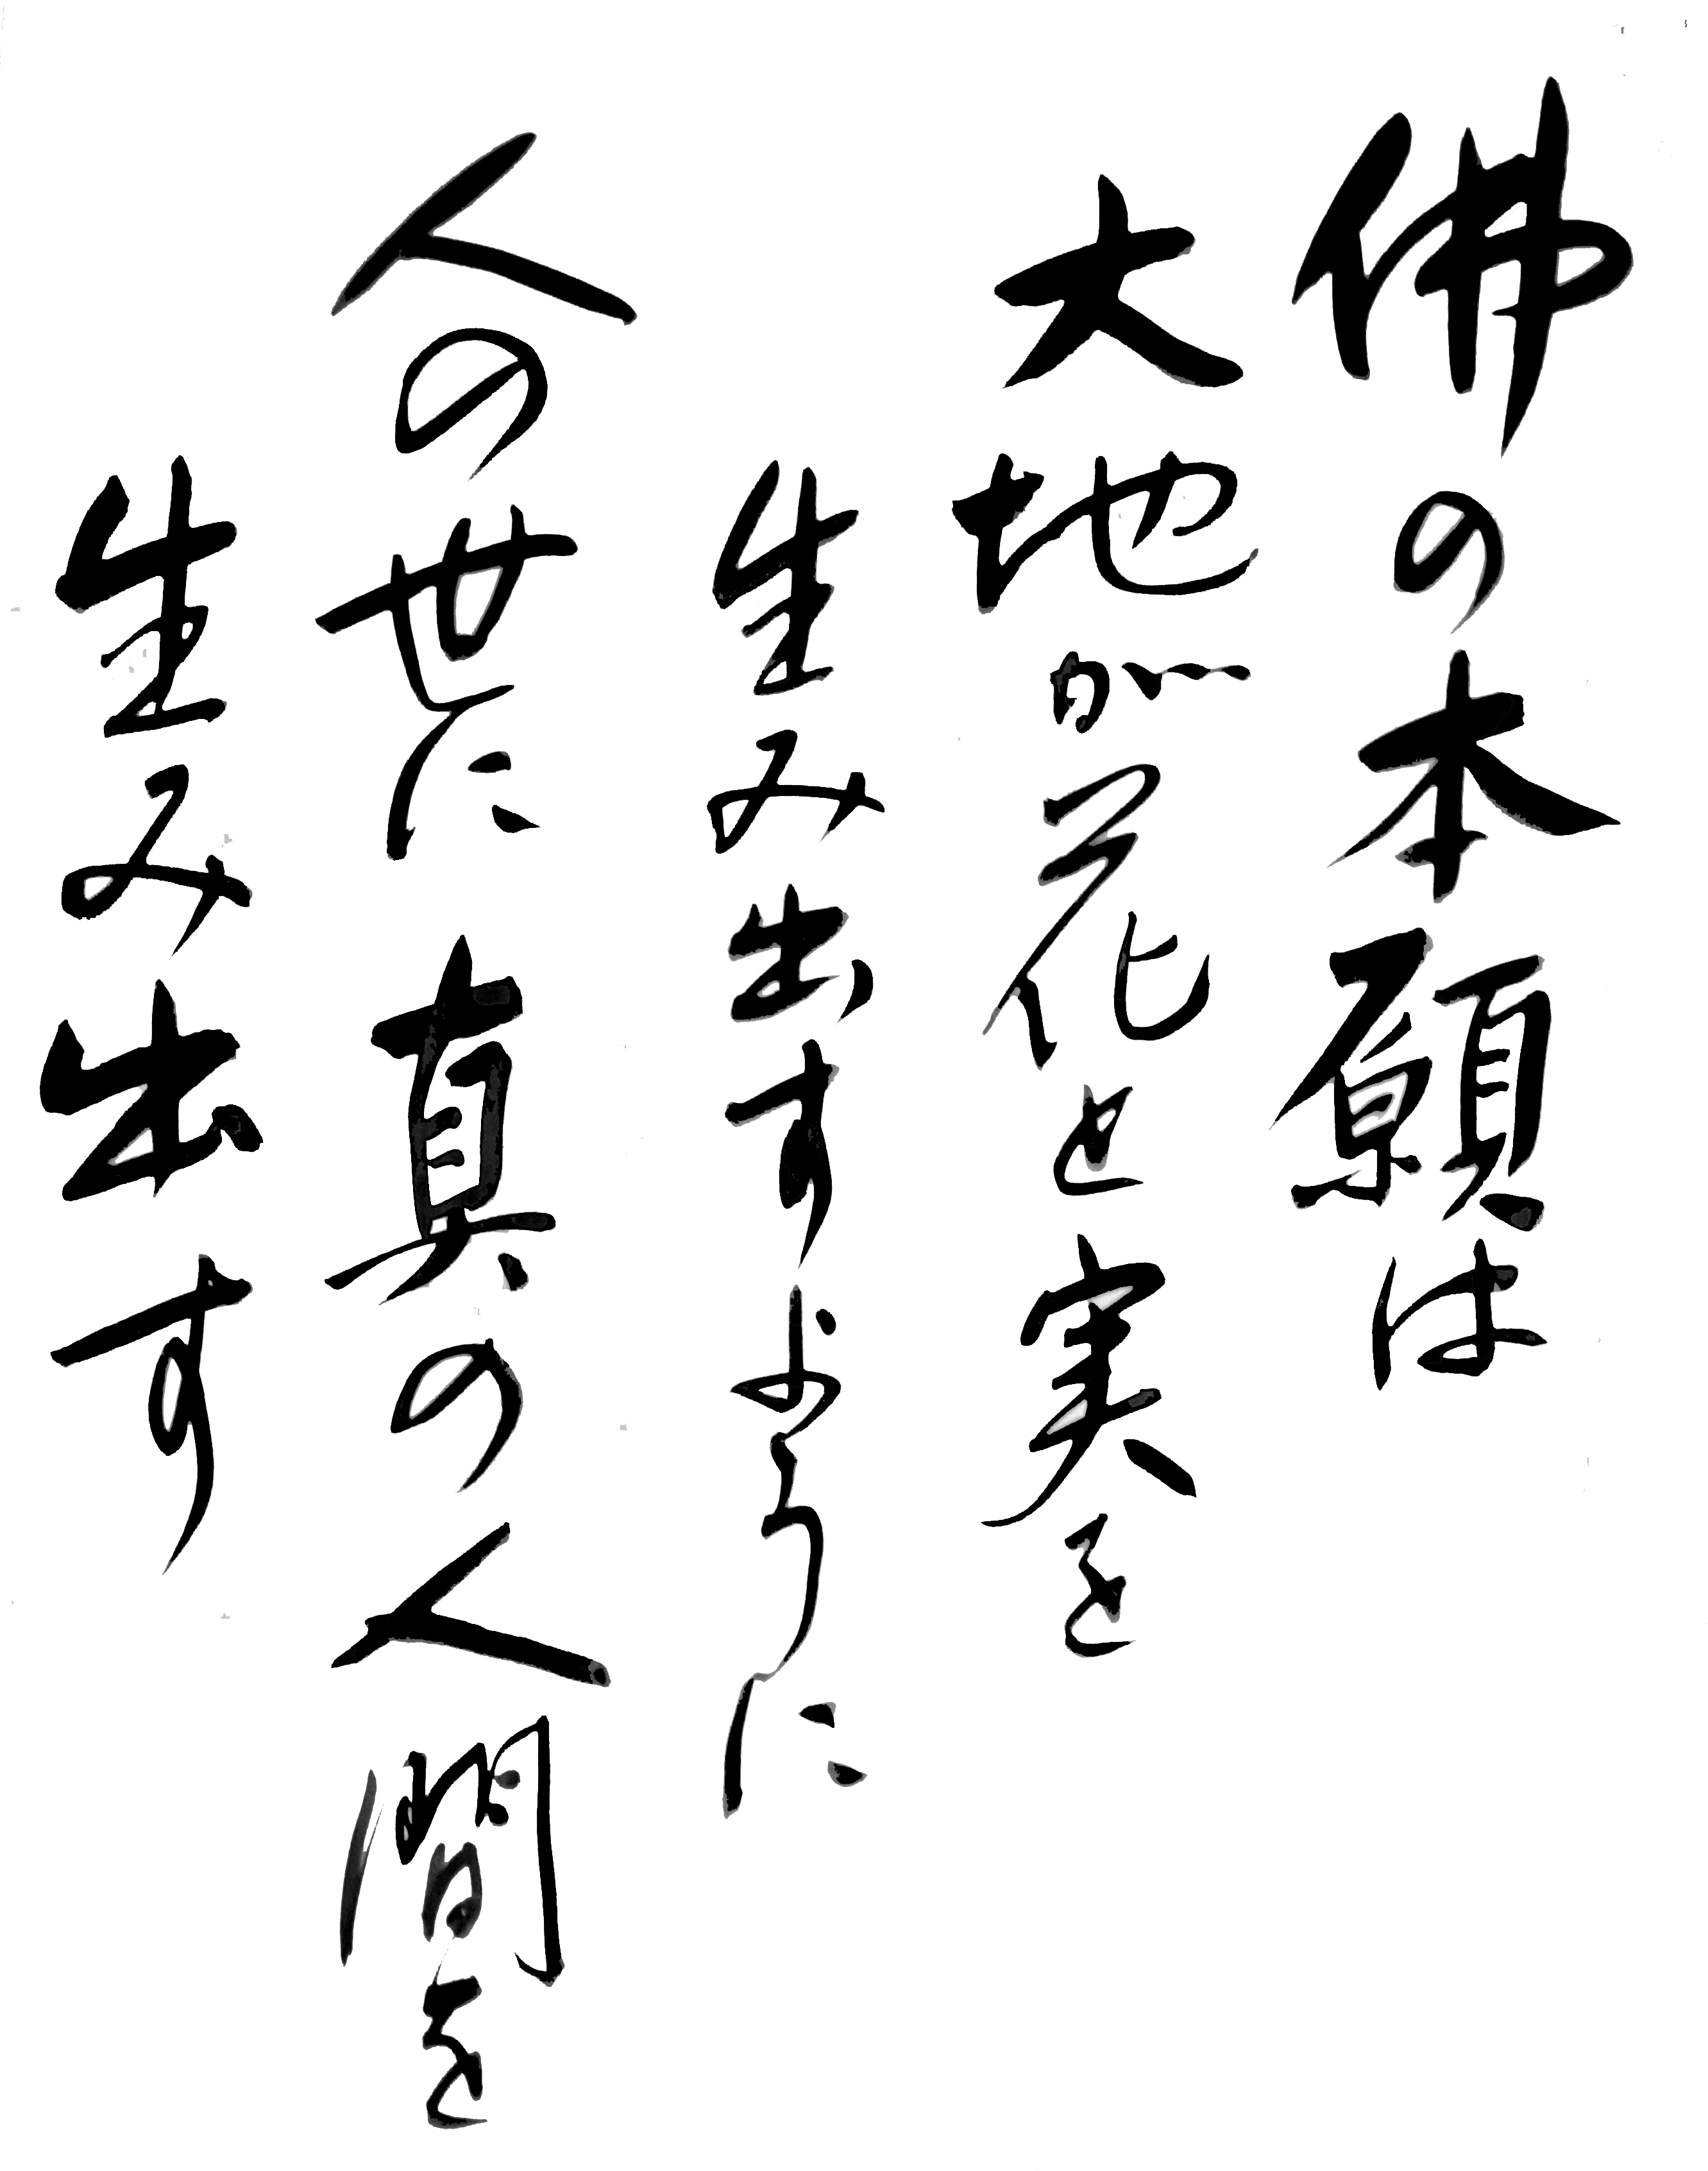 佛の本願は
大地が花と実を
生み出すように
人の世に真の人間を
生み出す